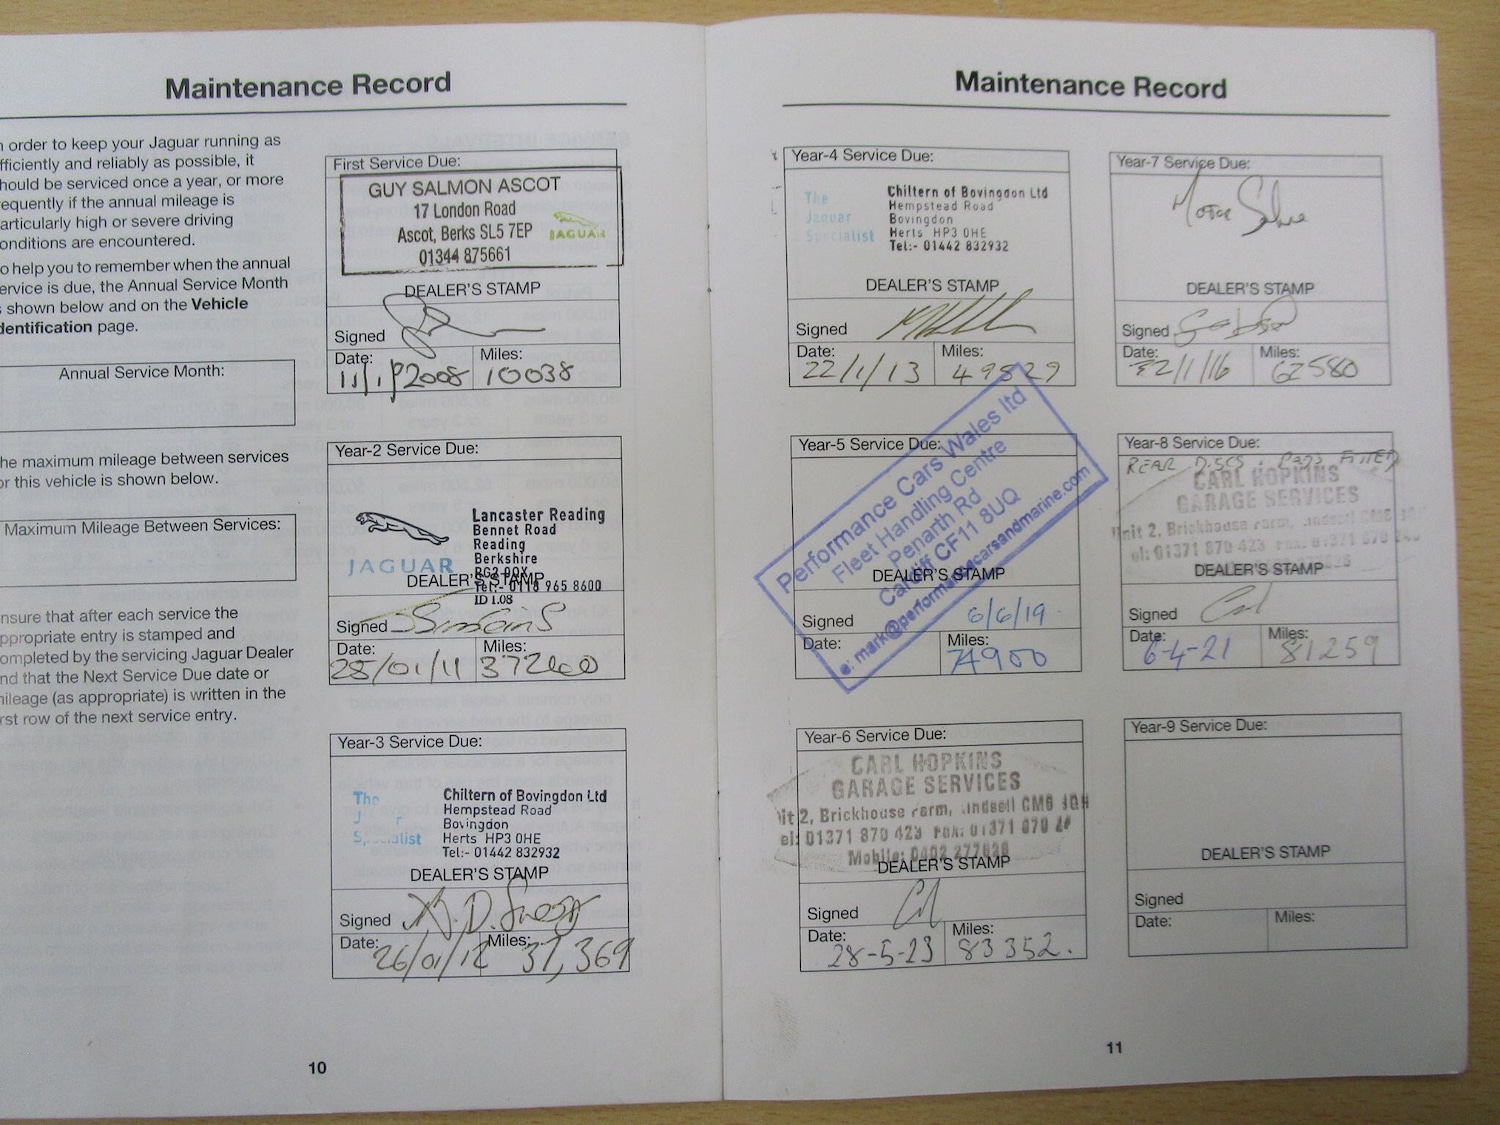 Maintenance Record
n order to keep your Jaguar running as
fficiently and reliably as possible, it
hould be serviced once a year, or more
requently if the annual mileage is
articularly high or severe driving
onditions are encountered.
o help you to remember when the annual
ervice is due, the Annual Service Month
s shown below and on the Vehicle
dentification page.
Annual Service Month:
he maximum mileage between services
or this vehicle is shown below.
Maximum Mileage Between Services:
nsure that after each service the
ppropriate entry is stamped and
ompleted by the servicing Jaguar Dealer
nd that the Next Service Due date or
nileage (as appropriate) is written in the
rst row of the next service entry.
First Service Due:
GUY SALMON ASCOT
17 London Road
Ascot, Berks SL5 7EP
01344 875661
JAGUAR
DEALER'S STAMP
Signed
Date: Miles:
11/1/2008 10038
Year-2 Service Due:
JAGUAR
Lancaster Reading
Bennet Road
Reading
Berkshire
RG2 0QX
Tel:- 0118 965 8600
ID 1.08
DEALER'S STAMP
Signed
Date: Miles:
25/01/11
Year-3 Service Due:
The
Chiltern of Bovingdon Ltd
Hempstead Road
Bovingdon
Herts HP3 0HE
Tel:- 01442 832932
DEALER'S STAMP
Signed
Date: Miles:
26/01/12 37,369
10
Maintenance Record
Year-4 Service Due:
The
Jaguar
Specialist
Chiltern of Bovingdon Ltd
Hempstead Road
Bovingdon
Herts HP3 0HE
Tel:- 01442 832932
DEALER'S STAMP
Signed
Date: Miles:
22/1/13 49829
Year-5 Service Due:
Performance Cars Wales ltd
Fleet Handling Centre
Penarth Rd
Cardiff CF11 8UQ
e: mark@performancecarsandmarine.com
DEALER'S STAMP
Signed
6/6/19
Date: Miles:
74900
Year-6 Service Due:
CARL HOPKINS
GARAGE SERVICES
nit 2, Brickhouse Farm, Lindsell CM6 3QH
el: 01371 870 423
Mobile:
DEALER'S STAMP
Signed
Date: Miles:
28-5-23 83352.
Year-7 Service Due:
Motor
DEALER'S STAMP
Signed
Date: Miles:
22/1/16 62580
Year-8 Service Due:
REAR DISCS + PADS FITTED
CARL HOPKINS
GARAGE SERVICES
Unit 2, Brickhouse Farm, Lindsell CM6
el: 01371 870 423
DEALER'S STAMP
Signed
Date: Miles:
6-4-21 81259
Year-9 Service Due:
DEALER'S STAMP
Signed
Date: Miles:
11